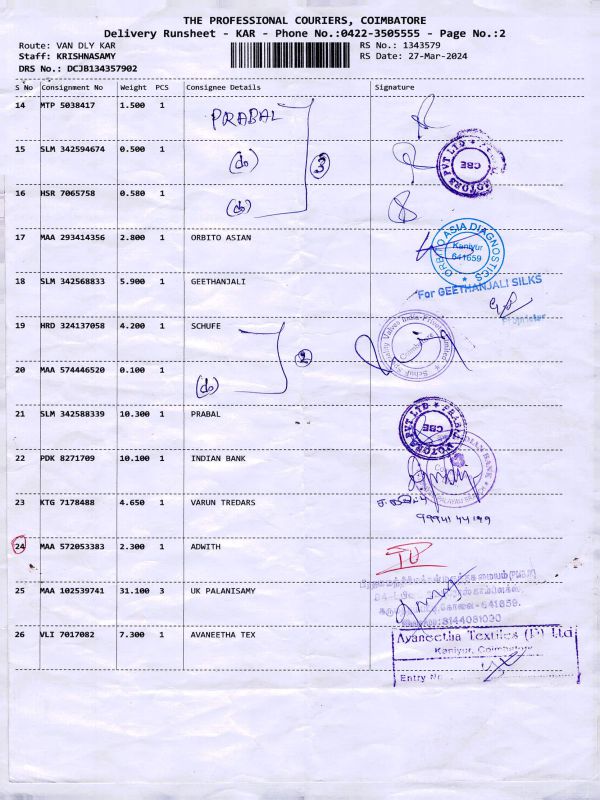 THE PROFESSIONAL COURIERS, COIMBATORE
Delivery Runsheet - KAR - Phone No.:0422-3505555 - Page No.:2
Route: VAN DLY KAR
RS No.: 1343579
Staff: KRISHNASAMY
RS Date: 27-Mar-2024
DRS No.: DCJB134357902
S No Consignment No Weight PCS Consignee Details Signature
14 MTP 5038417 1.500 1 PRABAL
15 SLM 342594674 0.500 1 (do) 3
MOTORS PVT LTD CBE
16 HSR 7065758 0.580 1 (do)
17 MAA 293414356 2.800 1 ORBITO ASIAN
ORBITO ASIA DIAGNOSTICS Kaniyur 641659
18 SLM 342568833 5.900 1 GEETHANJALI
For GEETHANJALI SILKS
Proprietor
19 HRD 324137058 4.200 1 SCHUFE
Valves India Private Limited Coimbatore
20 MAA 574446520 0.100 1 (do) 2
21 SLM 342588339 10.300 1 PRABAL
PRABAL MOTORS PVT LTD CBE
22 PDK 8271709 10.100 1 INDIAN BANK
INDIAN BANK
23 KTG 7178488 4.650 1 VARUN TREDARS
24 MAA 572053383 2.300 1 ADWITH
25 MAA 102539741 31.100 3 UK PALANISAMY
26 VLI 7017082 7.300 1 AVANEETHA TEX
Avaneetha Textiles (P) Ltd
Kaniyur, Coimbatore
Entry No